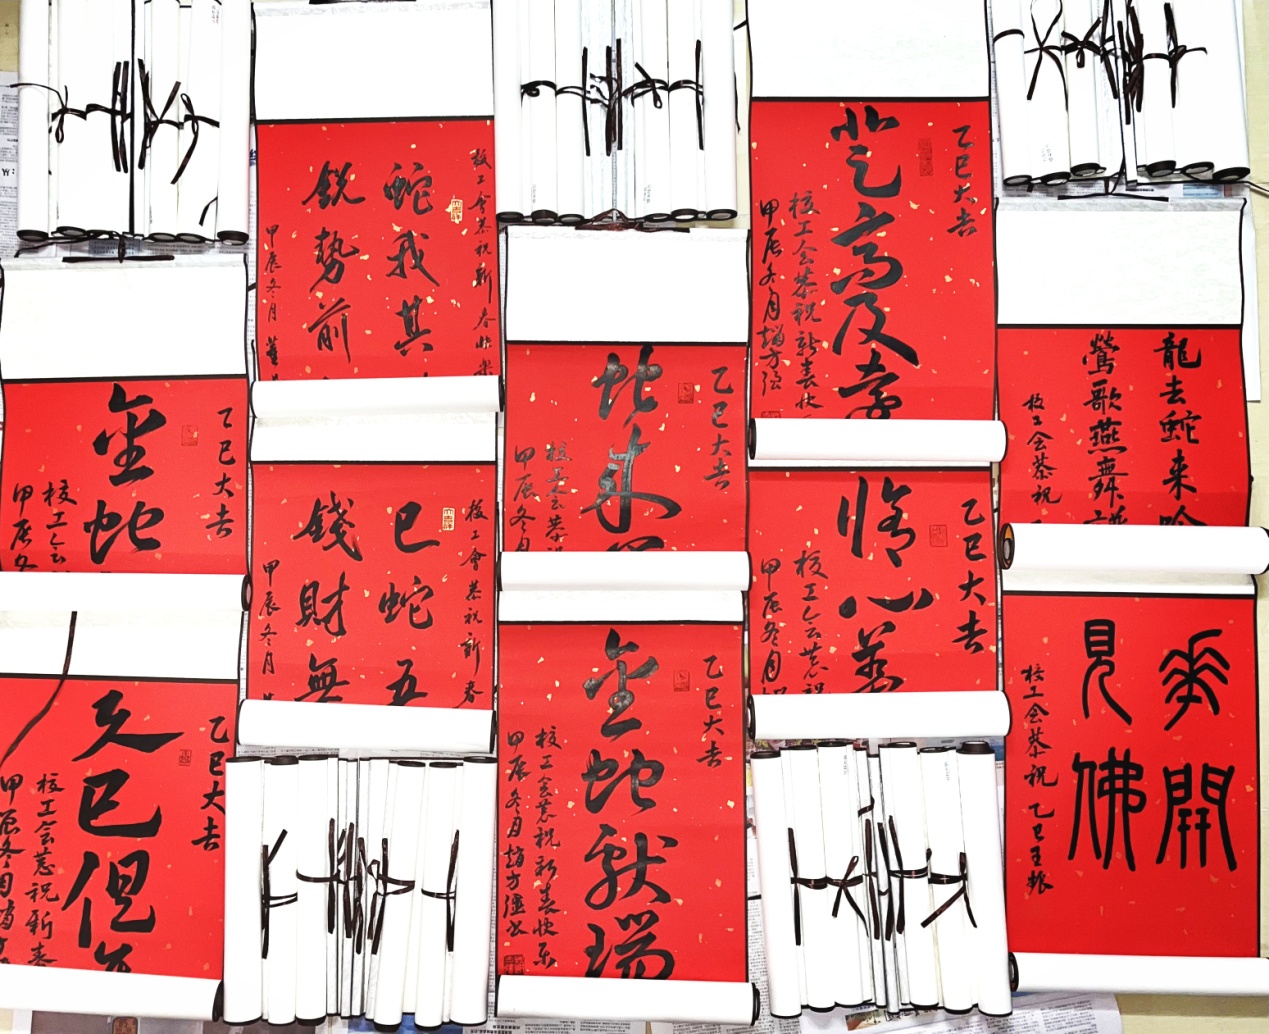 校工會恭祝新春快樂
蛇我其
銳勢前
甲辰冬月
乙巳大吉
登高及
校工会恭祝新春快
甲辰冬月赵方强
龍去蛇来
鶯歌燕舞
校工会恭祝
乙巳大吉
金蛇
校工会
甲辰冬
乙巳大吉
蛇来
校工会恭祝
甲辰冬
校工會恭祝新春
巳蛇五
錢財無
甲辰冬月
乙巳大吉
修心养
校工会恭祝
甲辰冬月
華開
見佛
校工会恭祝乙巳王振
乙巳大吉
金蛇献瑞
校工会恭祝新春快乐
甲辰冬月赵方强书
乙巳大吉
久巳但
校工会恭祝新春
甲辰冬月